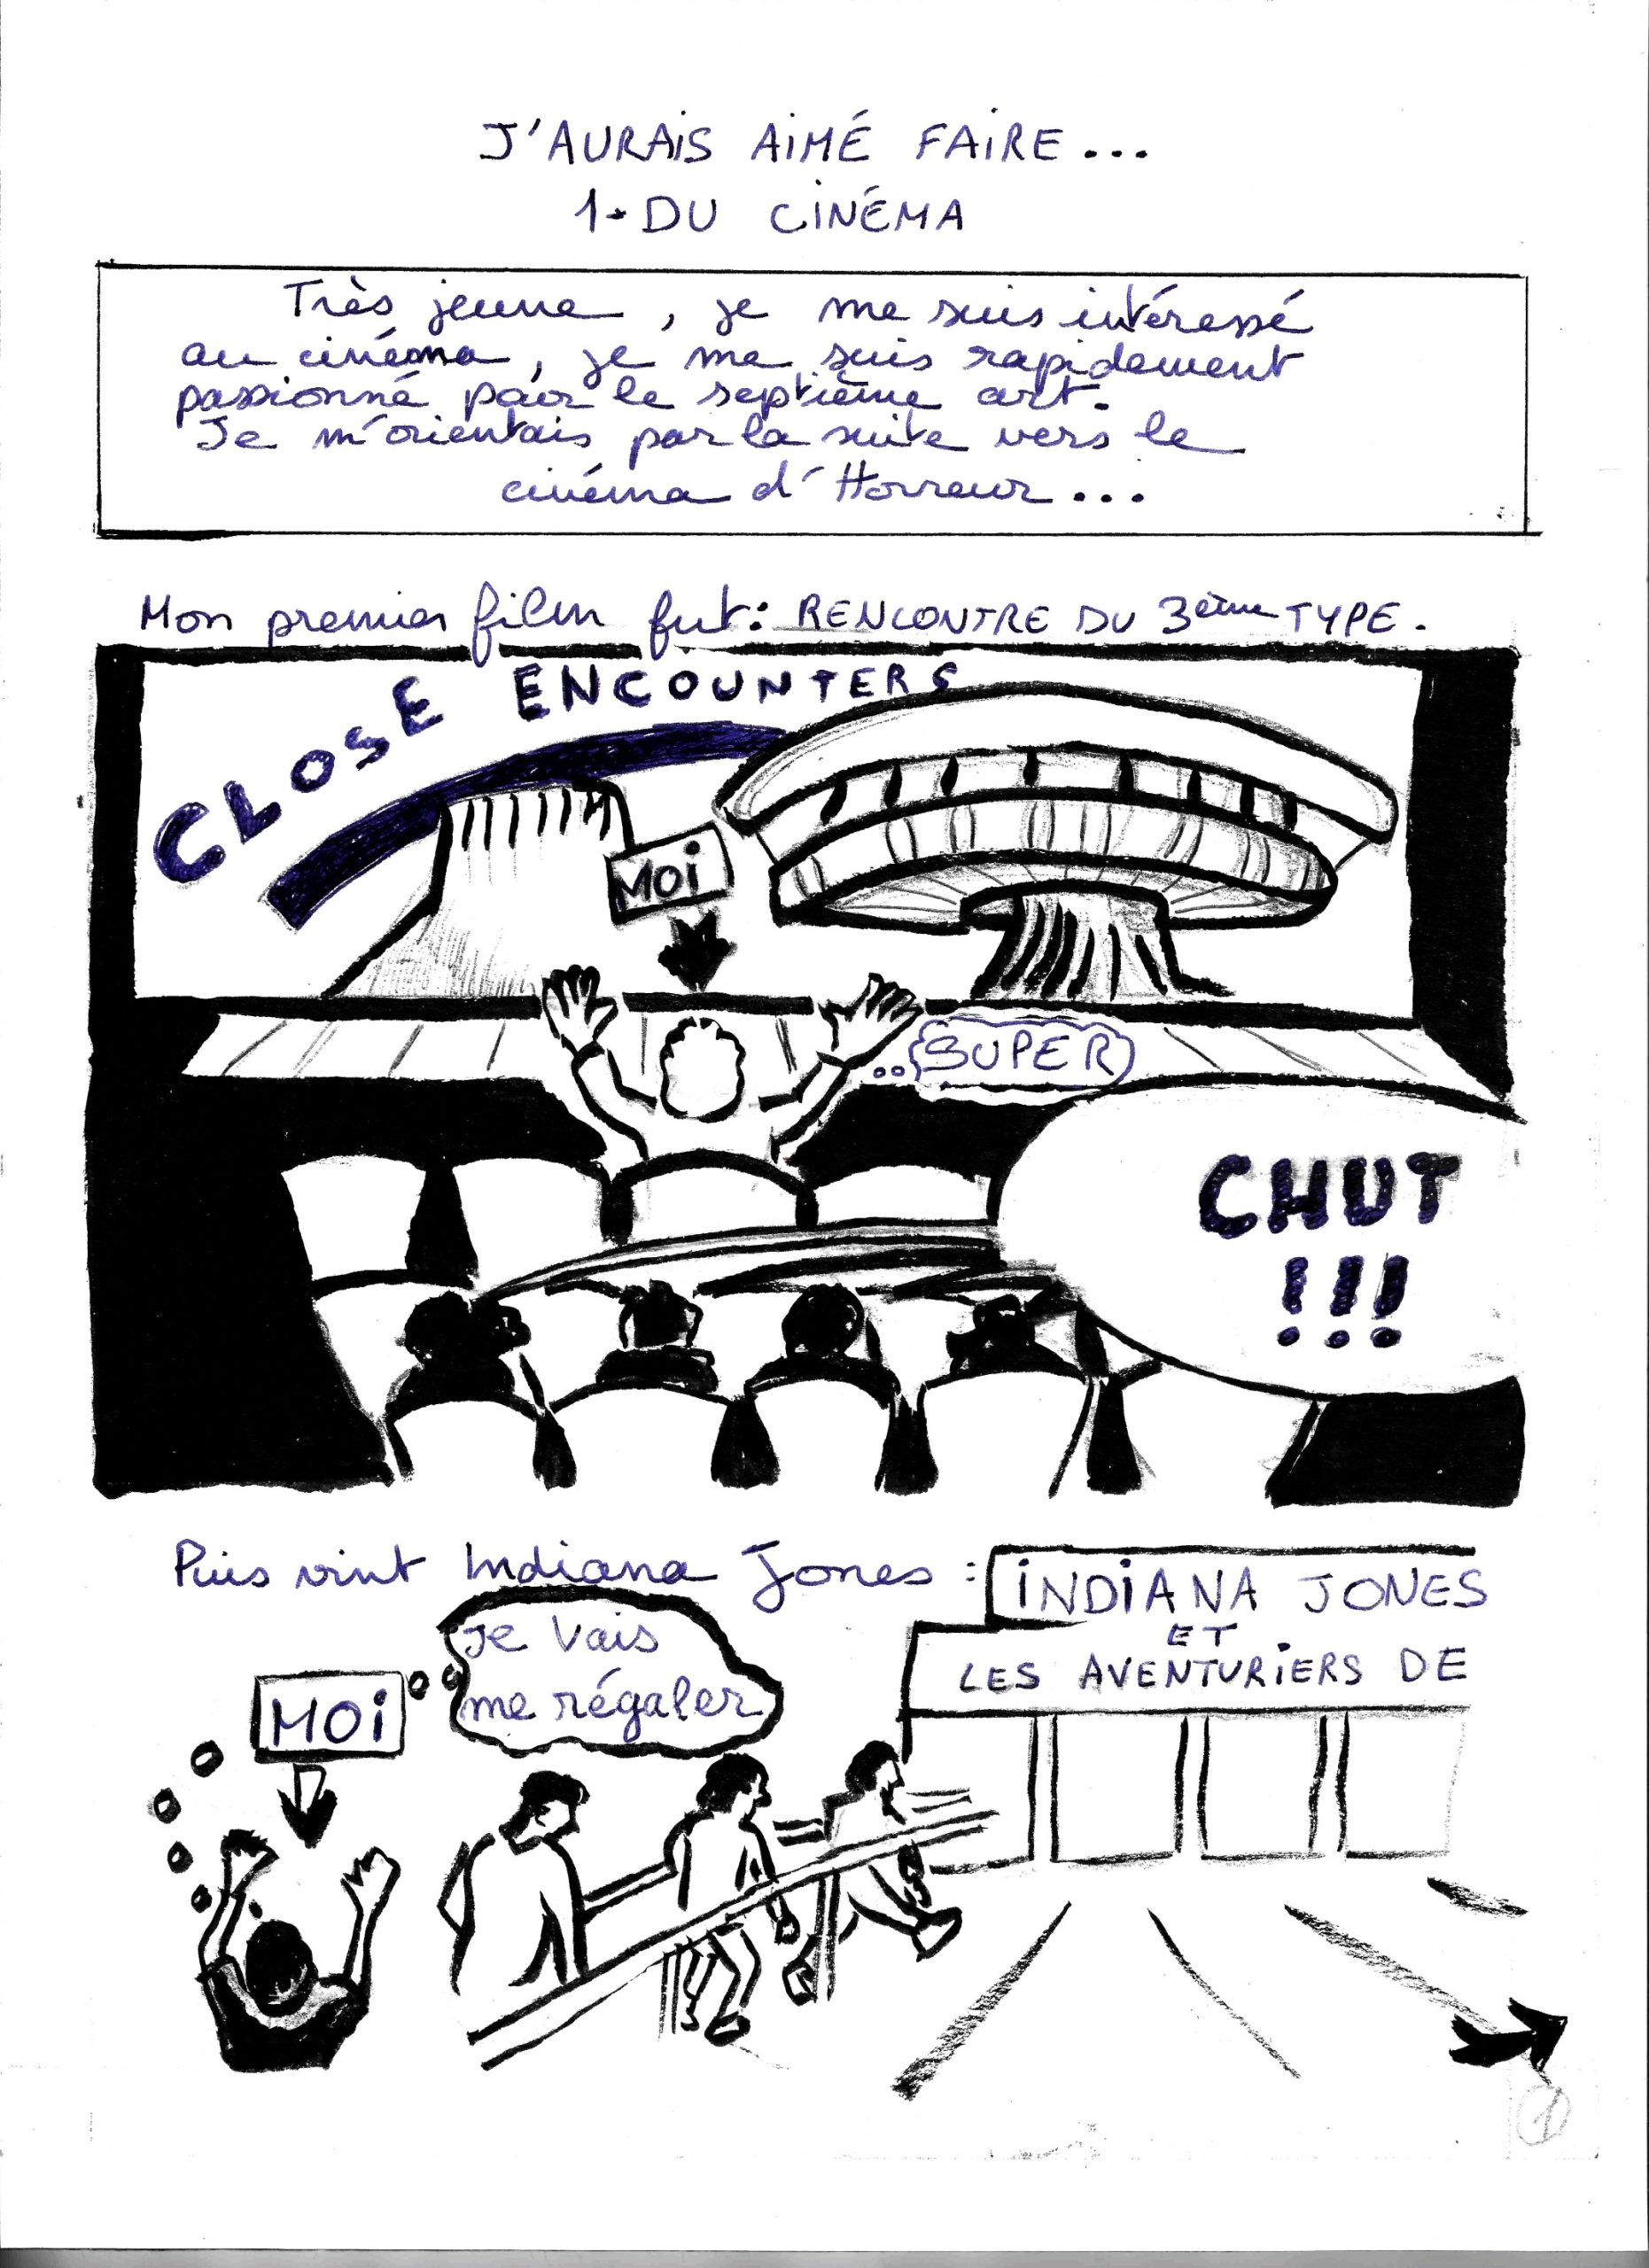 J'AURAIS AIMÉ FAIRE...
1. DU CINÉMA
Très jeune, je me suis intéressé
au cinéma, je me suis rapidement
passionné pour le septième art.
Je m'orientais par la suite vers le
cinéma d'Horreur...
Mon premier film fut : RENCONTRE DU 3ème TYPE.
CLOSE ENCOUNTERS
MOI
..SUPER
CHUT
!!!
Puis vint Indiana Jones :
INDIANA JONES
ET
LES AVENTURIERS DE
Je vais
me régaler
MOI
1